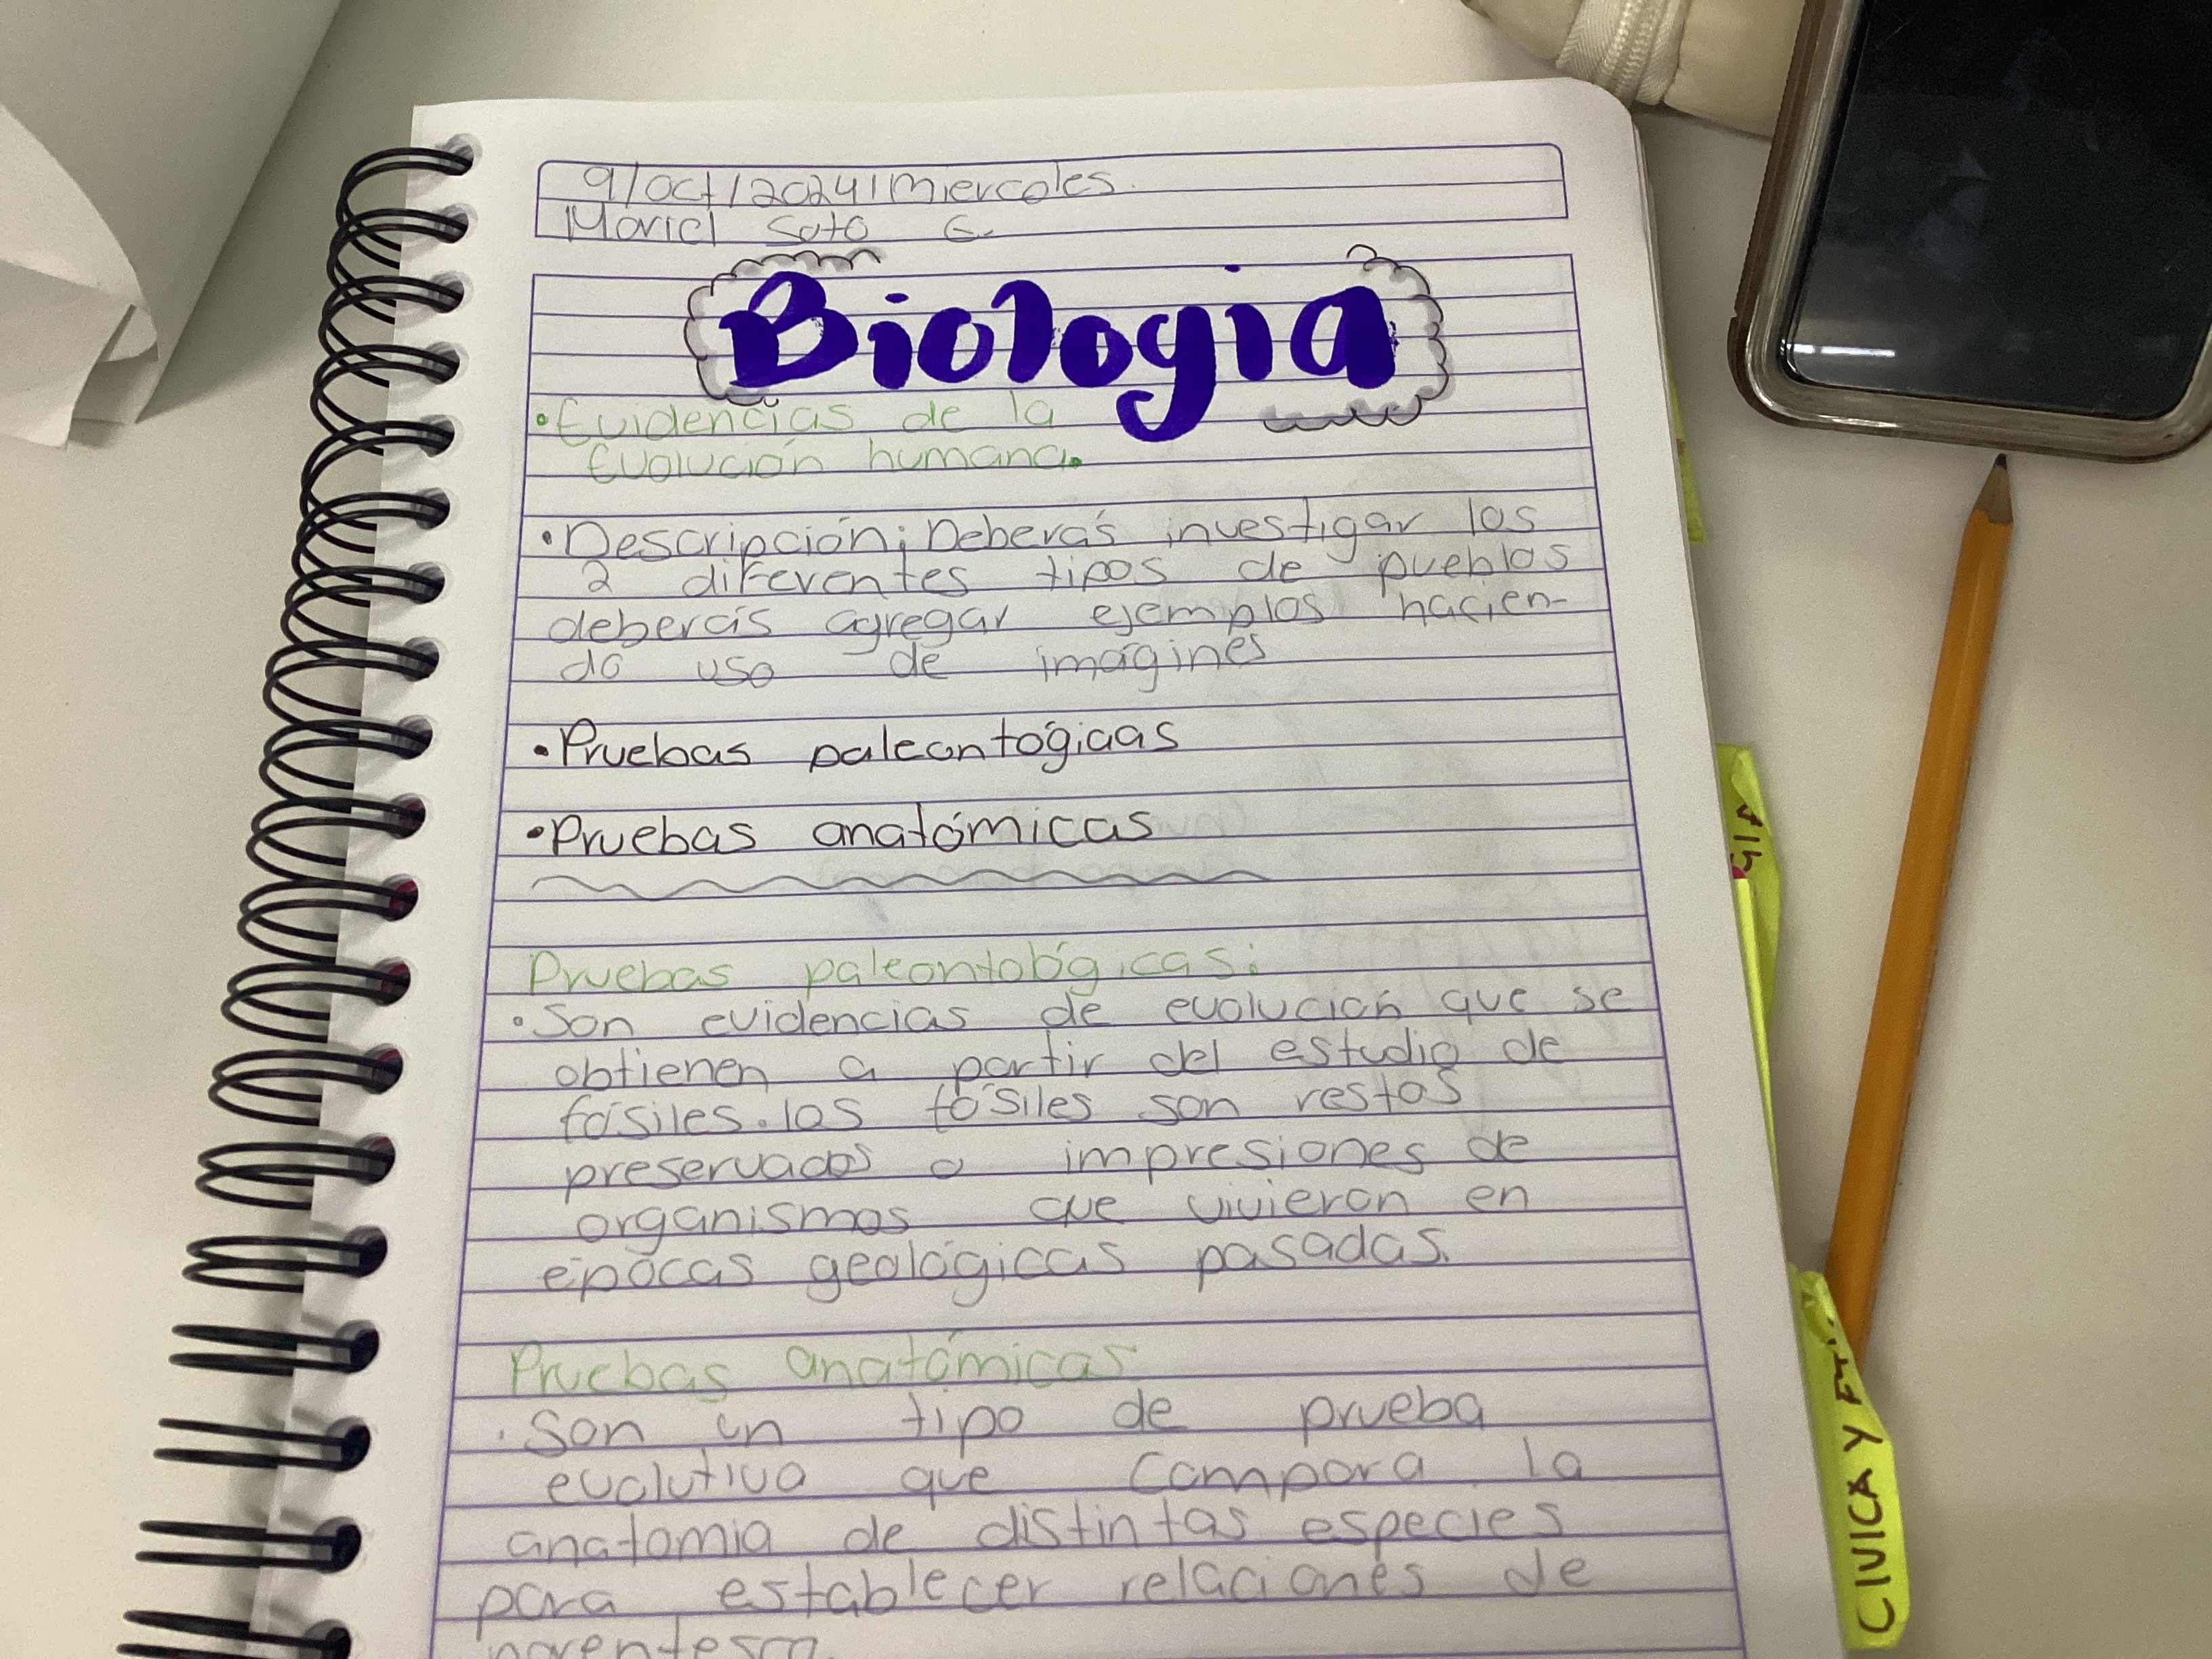 9/oct/2024/Miercoles.
Mariel Soto G.
Biología
•Evidencias de la
Evolución humana.
•Descripción; Deberás investigar los
2 diferentes tipos de pueblos
deberás agregar ejemplos hacien-
do uso de imágines
•Pruebas paleontógicas
•Pruebas anatómicas
Pruebas paleontológicas:
•Son evidencias de evolución que se
obtienen a partir del estudio de
fósiles. los fósiles son restos
preservados o impresiones de
organismos que vivieron en
épocas geológicas pasadas.
Pruebas anatómicas
•Son un tipo de prueba
evolutiva que compara la
anatomia de distintas especies
para establecer relaciones de
parentesco
GIA
CIVICA Y ETI